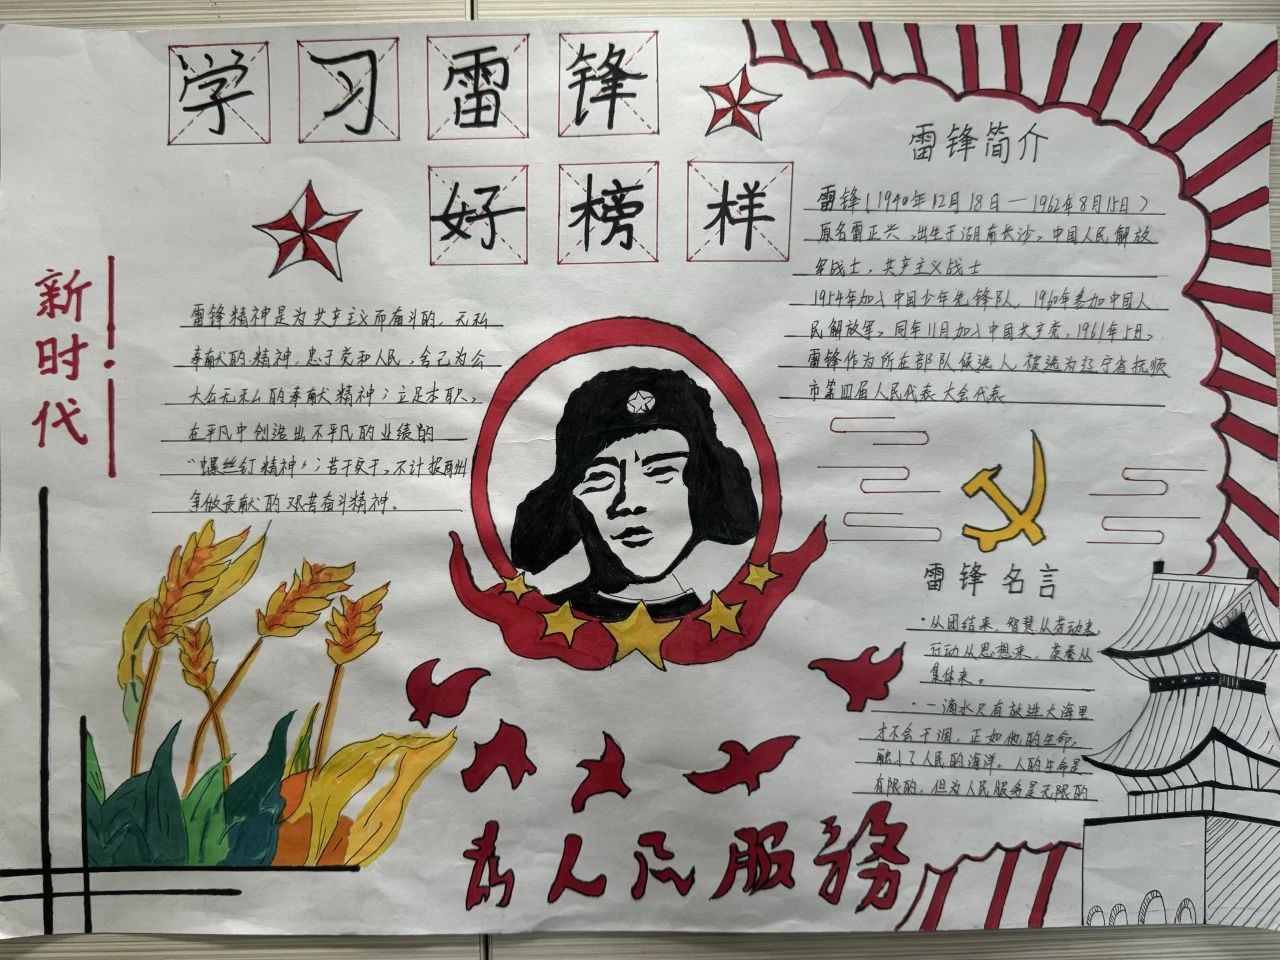 学习雷锋
好榜样
新时代
雷锋精神是为共产主义而奋斗的，无私
奉献的精神，忠于党和人民，舍己为公
大公无私的奉献精神；立足本职，
在平凡中创造出不平凡的业绩的
“螺丝钉精神”；苦干实干，不计报酬
争做贡献的艰苦奋斗精神。
雷锋简介
雷锋（1940年12月18日—1962年8月15日）
原名雷正兴，出生于湖南长沙，中国人民解放
军战士，共产主义战士
1954年加入中国少年先锋队，1960年参加中国人
民解放军，同年11月加入中国共产党，1961年5月，
雷锋作为所在部队候选人，被选为辽宁省抚顺
市第四届人民代表大会代表
雷锋名言
·从团结来，智慧从劳动来，
行动从思想来，荣誉从
集体来。
·一滴水只有放进大海里
才不会干涸，正如他的生命，
融入了人民的海洋。人的生命是
有限的，但为人民服务是无限的
为人民服務